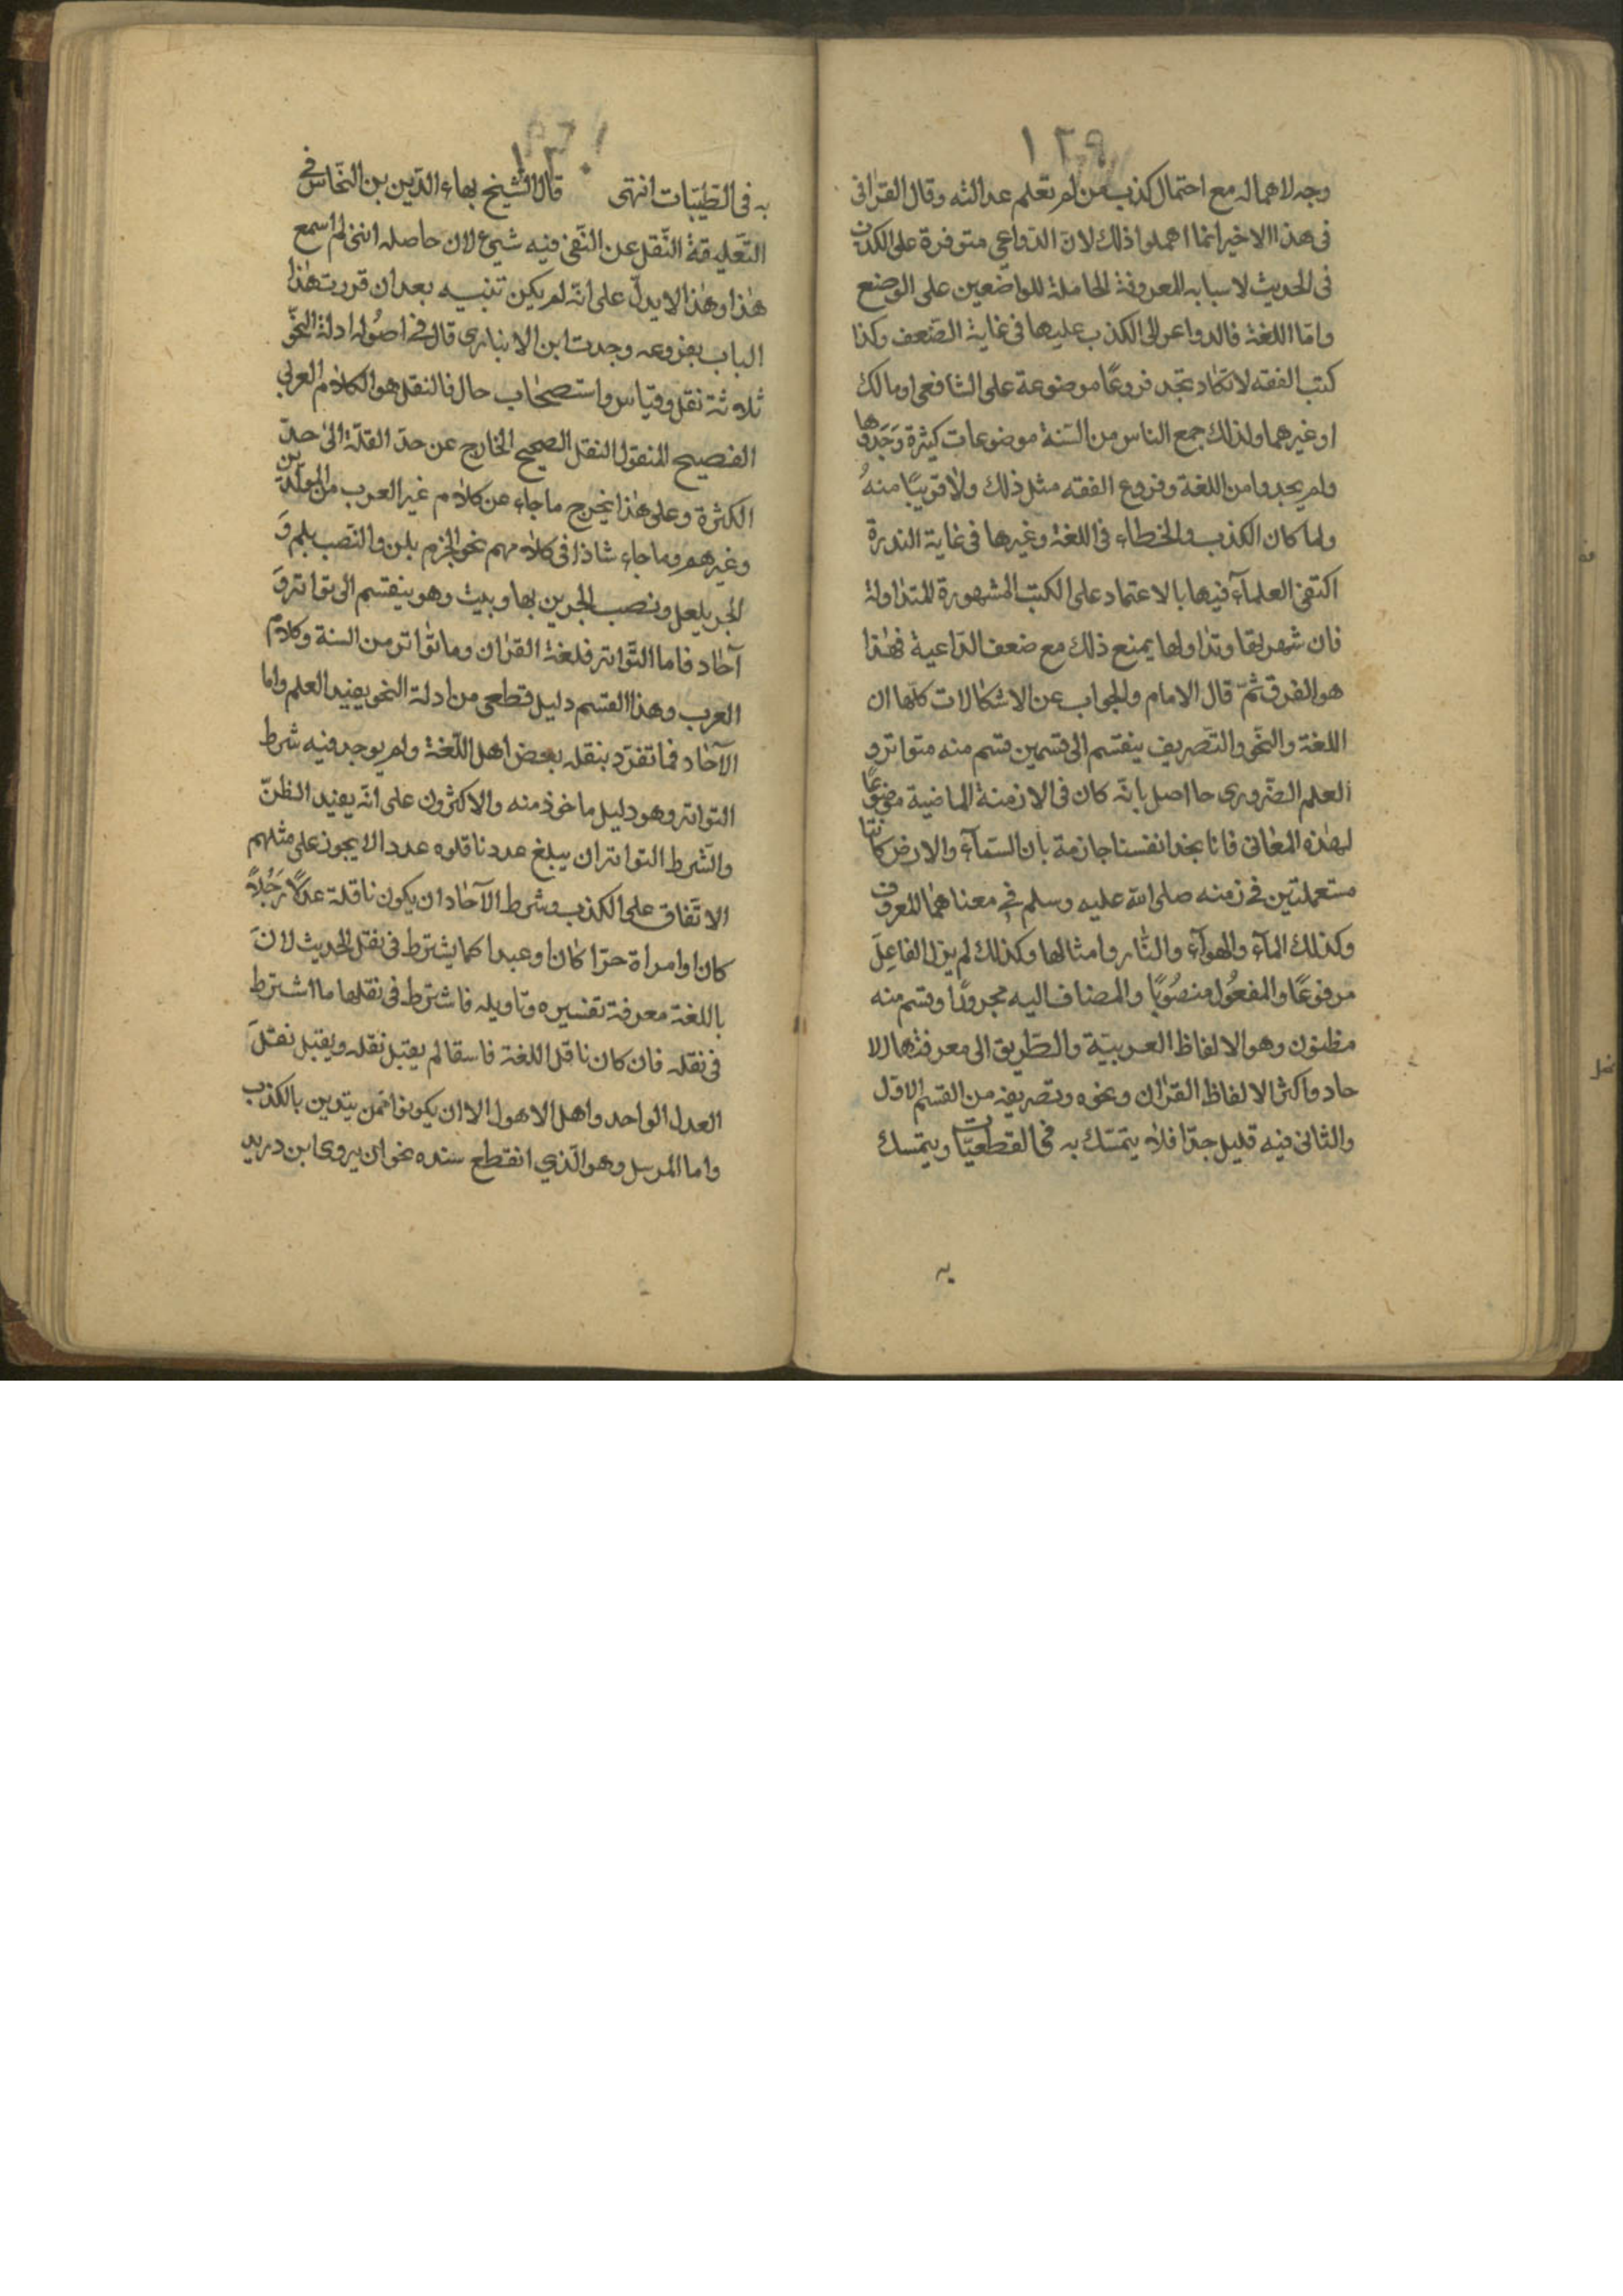 ١٢٩
وجه لاهماله مع احتمال كذب من لم تعلم عدالته وقال القرافى
فى هذا الاخير انما اهملوا ذلك لان الدواعى متوفرة على الكذب
فى الحديث لاسبابه المعروفة الحاملة للواضعين على الوضع
واما اللغة فالدواعى الى الكذب عليها فى غاية الضعف وكذا
كتب الفقه لا تكاد تجد فروعًا موضوعة على الشافعى او مالك
او غيرهما ولذلك جمع الناس من السنة موضوعات كثيرة وَجَدوها
ولم يجدوا من اللغة وفروع الفقه مثل ذلك ولا قريبًا منهُ
ولما كان الكذب والخطاء فى اللغة وغيرها فى غاية الندرة
اكتفى العلمآء فيها بالاعتماد على الكتب المشهورة المتداولة
فان شهرتها وتداولها يمنع ذلك مع ضعف الداعية فهذا
هو الفرق ثمّ قال الامام والجواب عن الاشكالات كلّها ان
اللغة والنحو والتصريف ينقسم الى قسمين قسم منه متواتر و
العلم الضّرورى حااصل بانّه كان فى الازمنة الماضية موضوعًا
لهذه المعانى فانا نجد انفسنا جازمة بأن السّمآء والارض كانتا
مستعملتين فى زمنه صلى الله عليه وسلم فى معناهما المعروف
وكذلك المآء والهوآء والنّار وامثالها وكذلك لم يزل الفاعلَ
مرفوعًا والمفعُول منصُوبًا والمضاف اليه مجرورًا وقسم منه
مظنون وهو الالفاظ العربيّة والطّريق الى معرفتها الا
حاد واكثر الالفاظ القرٰان ونحوه وتصريفه من القسم الاوّل
والثانى فيه قليل جدّا فلا يتمسّك به فى القطعيّات ويتمسك
به
١٣٠
به فى الظنّيّات انتهى قال الشيخ بهاء الدّين بن النحّاس فى
التّعليقة النّقل عن النّفى فيه شيئ لان حاصله اننى لم اسمع
هٰذا وهٰذا لا يدلّ على انّه لم يكن تنبيه بعد ان قررت هٰذا
الباب بفروعه وجدت ابن الانبارى قال فى اصُوله ادلة النحو
ثلاثة نقل وقياس واستصحٰاب حال فالنقل هو الكلام العربى
الفصيح المنقول النقل الصحيح الخارج عن حدّ القلّة الى حدّ
الكثرة وعلى هٰذا يخرج ما جاء عن كلام غير العرب من المولّدين
وغيرهم وما جاء شاذا فى كلامهم نحو الجزم بلن والنصب بلم وَ
الجر بلعل ونصب الجزين بها وبيث وهو ينقسم الى تواتر وَ
آحٰاد فاما التّواتر فلغة القرٰان وما تواتر من السنة وكلام
العرب وهذا القسم دليل قطعى من ادلة النحو يفيد العلم واما
الآحٰاد فما تفرّد بنقله بعض اهل اللّغة ولم يوجد فيه شرط
التواتر وهو دليل ماخوذ منه والاكثرون على انّه يفيد الظنّ
والشرط التواتر ان يبلغ عدد ناقلوه عددا لا يجوز على مثلهم
الاتّفاق على الكذب وشرط الآحٰاد ان يكون ناقله عدلًا رَجُلاً
كان او امراة حرّا كٰان او عبدا كما يشترط فى نقل الحديث لانَ
باللغة معرفة تفسيره وتاويله فاشترط فى نقلها ما اشترط
فى نقله فان كان ناقل اللغة فاسقا لم يقبل نقله ويقبل نقلَ
العدل الواحد واهل الاهوا الا ان يكونوا ممن يتدين بالكذب
واما المرسل وهو الّذي انقطع سنده نحو ان يروى ابن دريد